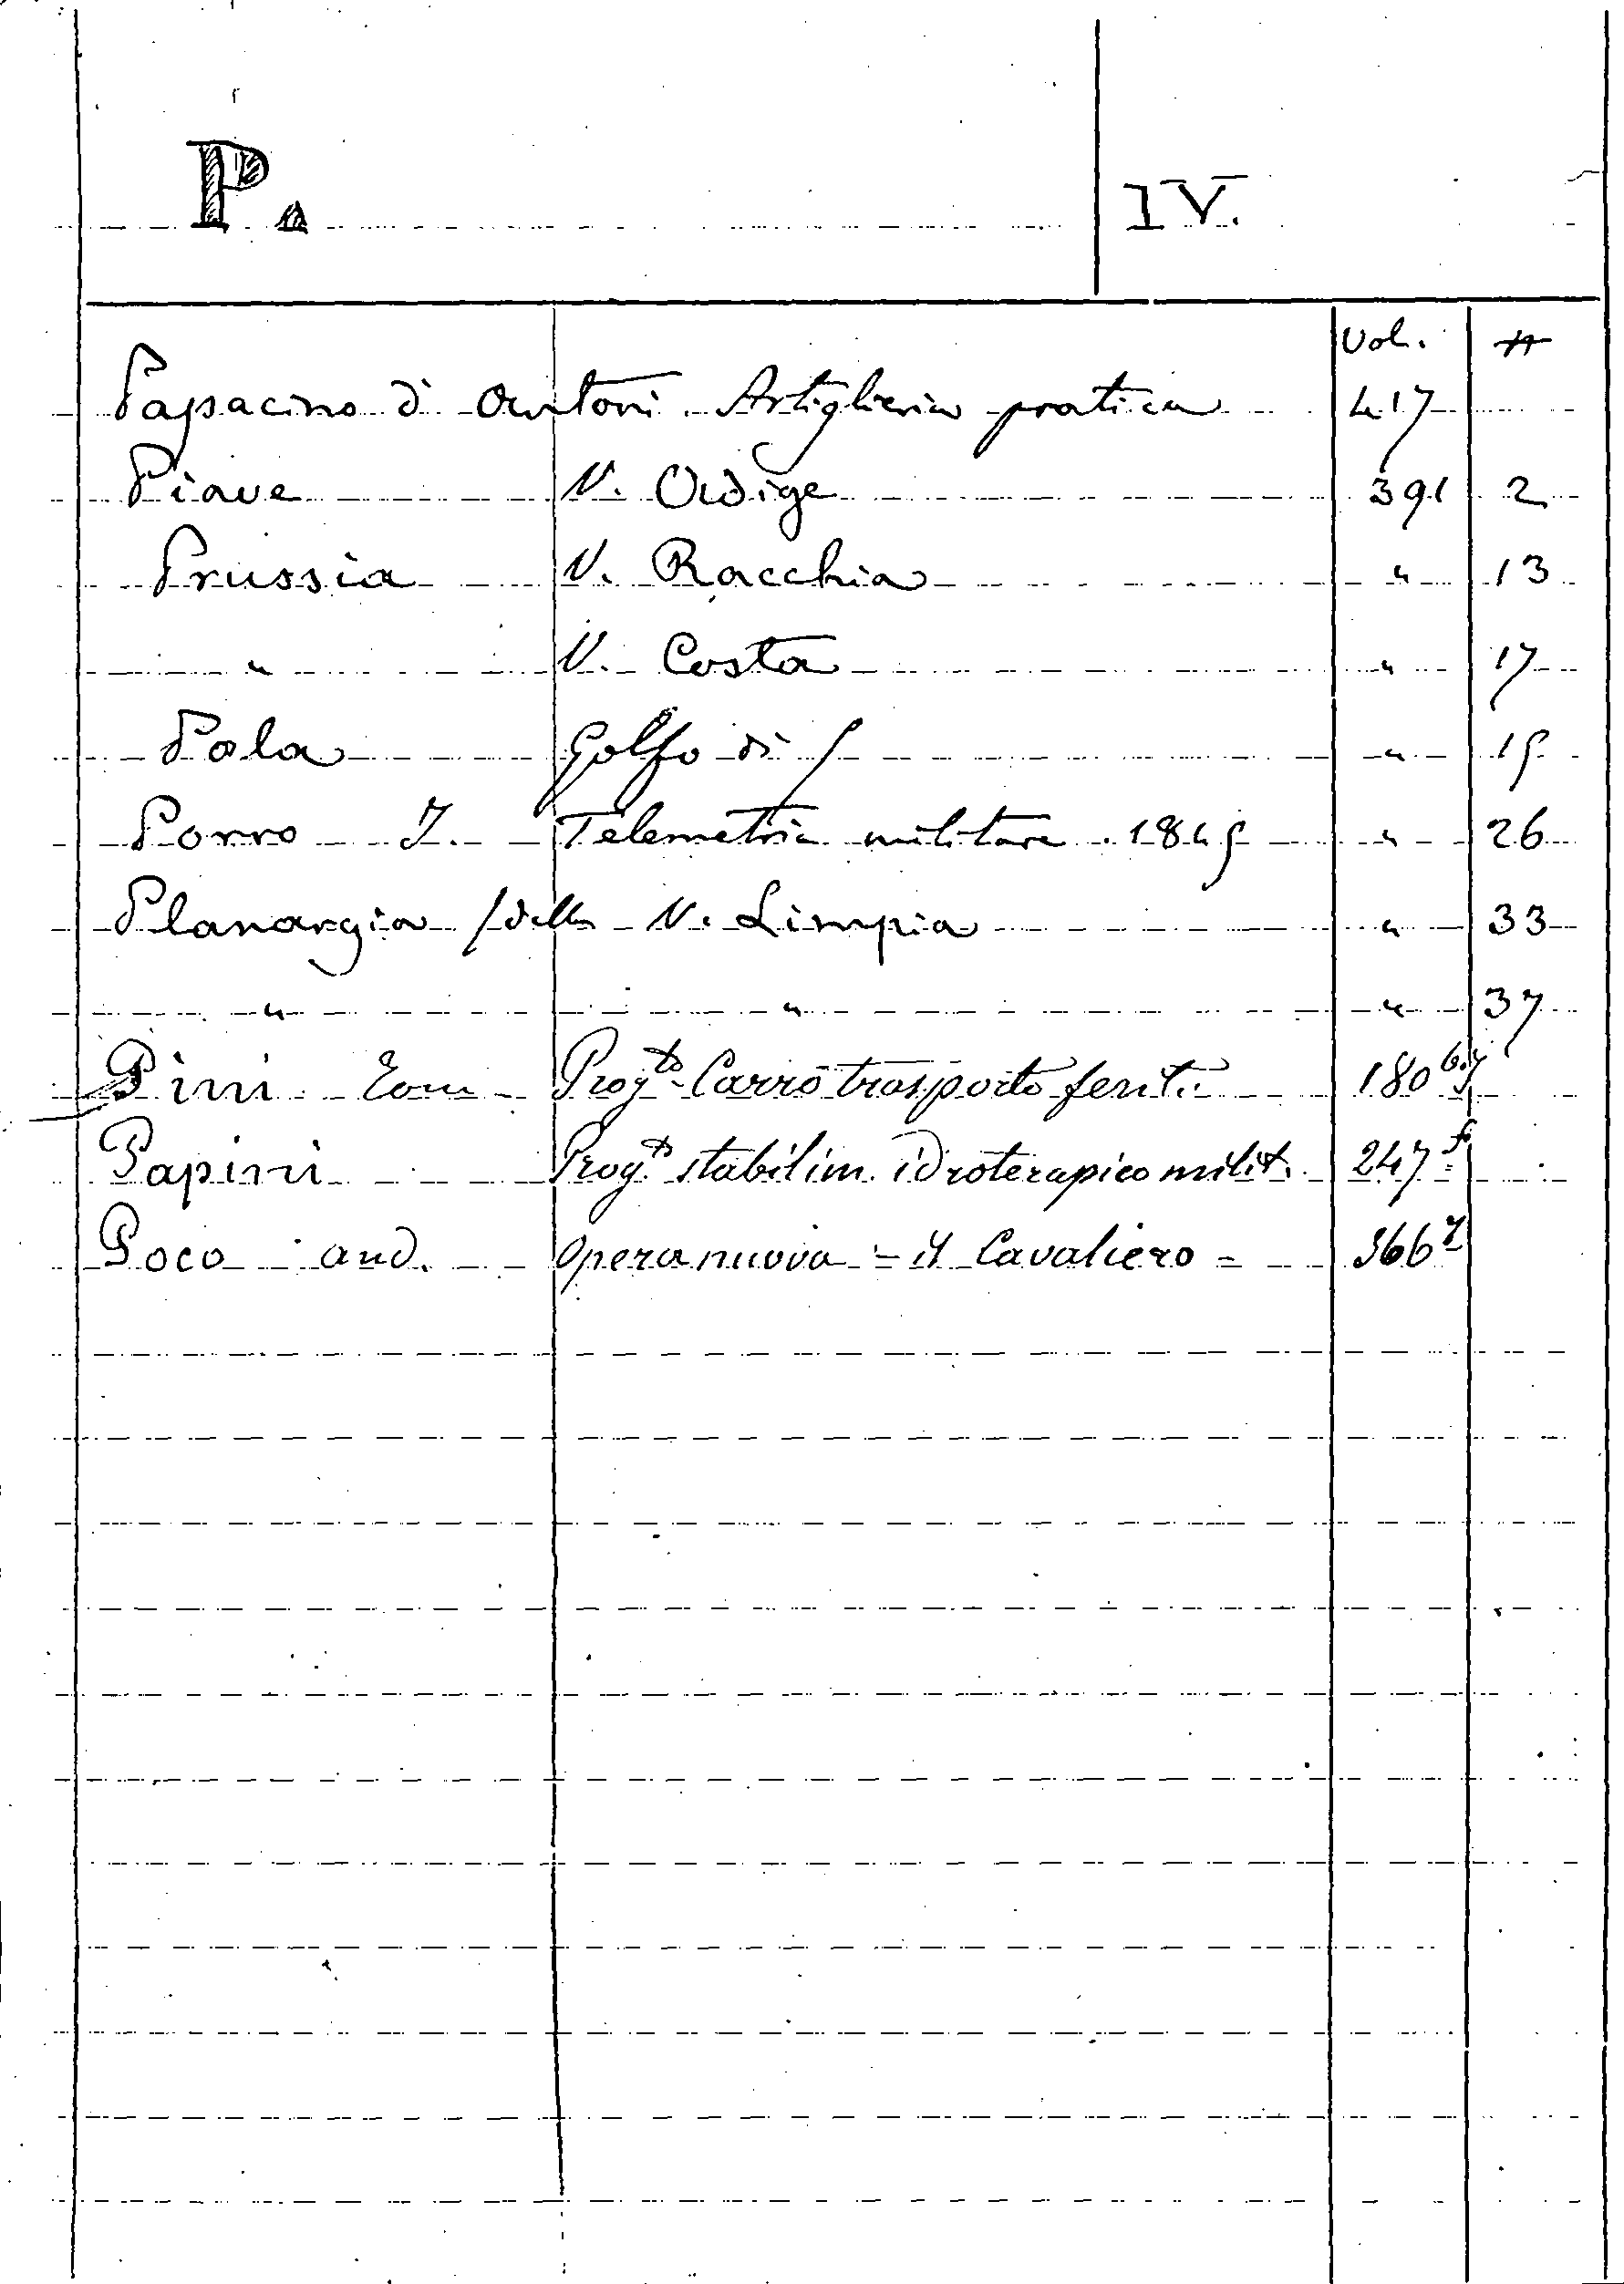 P. IV.
Vol. #
Papacino d'Antoni Artiglieria pratica 417
Piave V. Adige 391 2
Prussia V. Racchia " 13
" V. Costa " 17
Pola Golfo di / " 19
Porro I. Telemetria militare. 1849 " 26
Planargia /della V. Limpia " 33
" " " 37
Pini Prog.to Carro trasporto feriti 180
Papini Prog.to stabilim. idroterapico milit. 247
Poco and. Opera nuova = il Cavaliero = 366